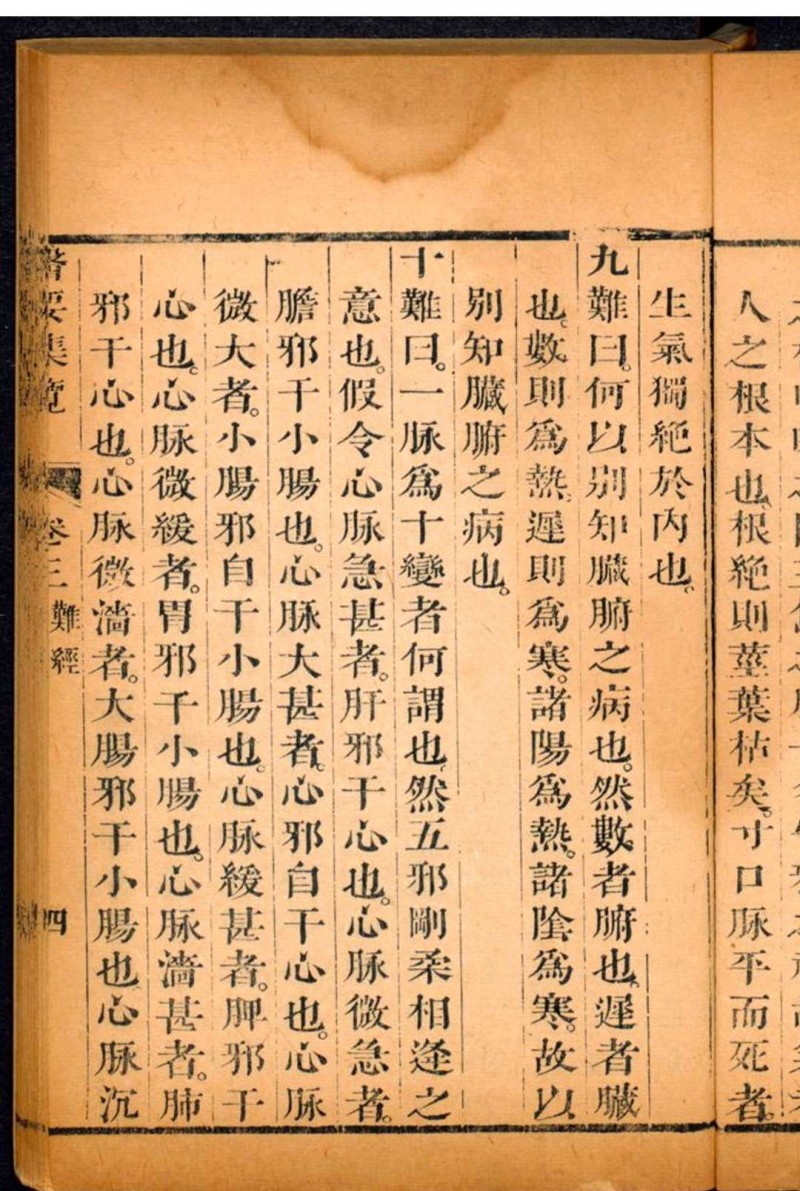 人之根本也根絶則莖葉枯矣。寸口脉平而死者。
生氣獨絶於内也。
九難曰。何以別知臟腑之病也。然數者腑也。遲者臟
也。數則爲熱。遲則爲寒。諸陽爲熱。諸陰爲寒。故以
別知臟腑之病也。
十難曰。一脉爲十變者何謂也。然五邪剛柔相逢之
意也。假令心脉急甚者。肝邪干心也。心脉微急者。
膽邪干小腸也。心脉大甚者。心邪自干心也。心脉
微大者。小腸邪自干小腸也。心脉緩甚者。脾邪干
心也。心脉微緩者。胃邪干小腸也。心脉濇甚者。肺
邪干心也。心脉微濇者。大腸邪干小腸也心脉沉
卷三 難經 四